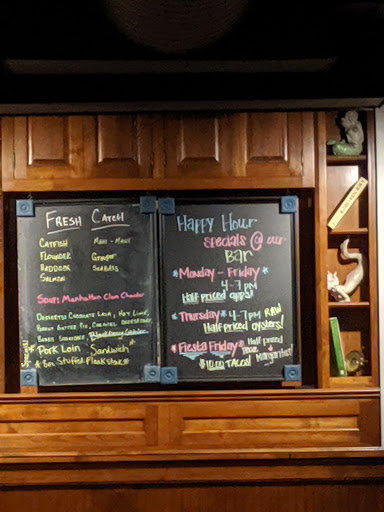 FRESH CATCH
CATFISH MAHI-MAHI
FLOUNDER Grouper
HADDOCK SEABASS
SALMON
Soup: Manhattan Clam Chowder
Desserts: Chocolate Lava, Key Lime,
Peanut Butter Pie, Caramel
Berry
Pork Loin Sandwich
Stuffed Flounder
Happy Hour
Specials @ our
Bar
Monday - Friday
4-7 pm
Half priced apps!
Thursday 4-7pm RAW
Half priced oysters!
Fiesta Friday Half priced
House Margaritas!
$10.00 TACOS!